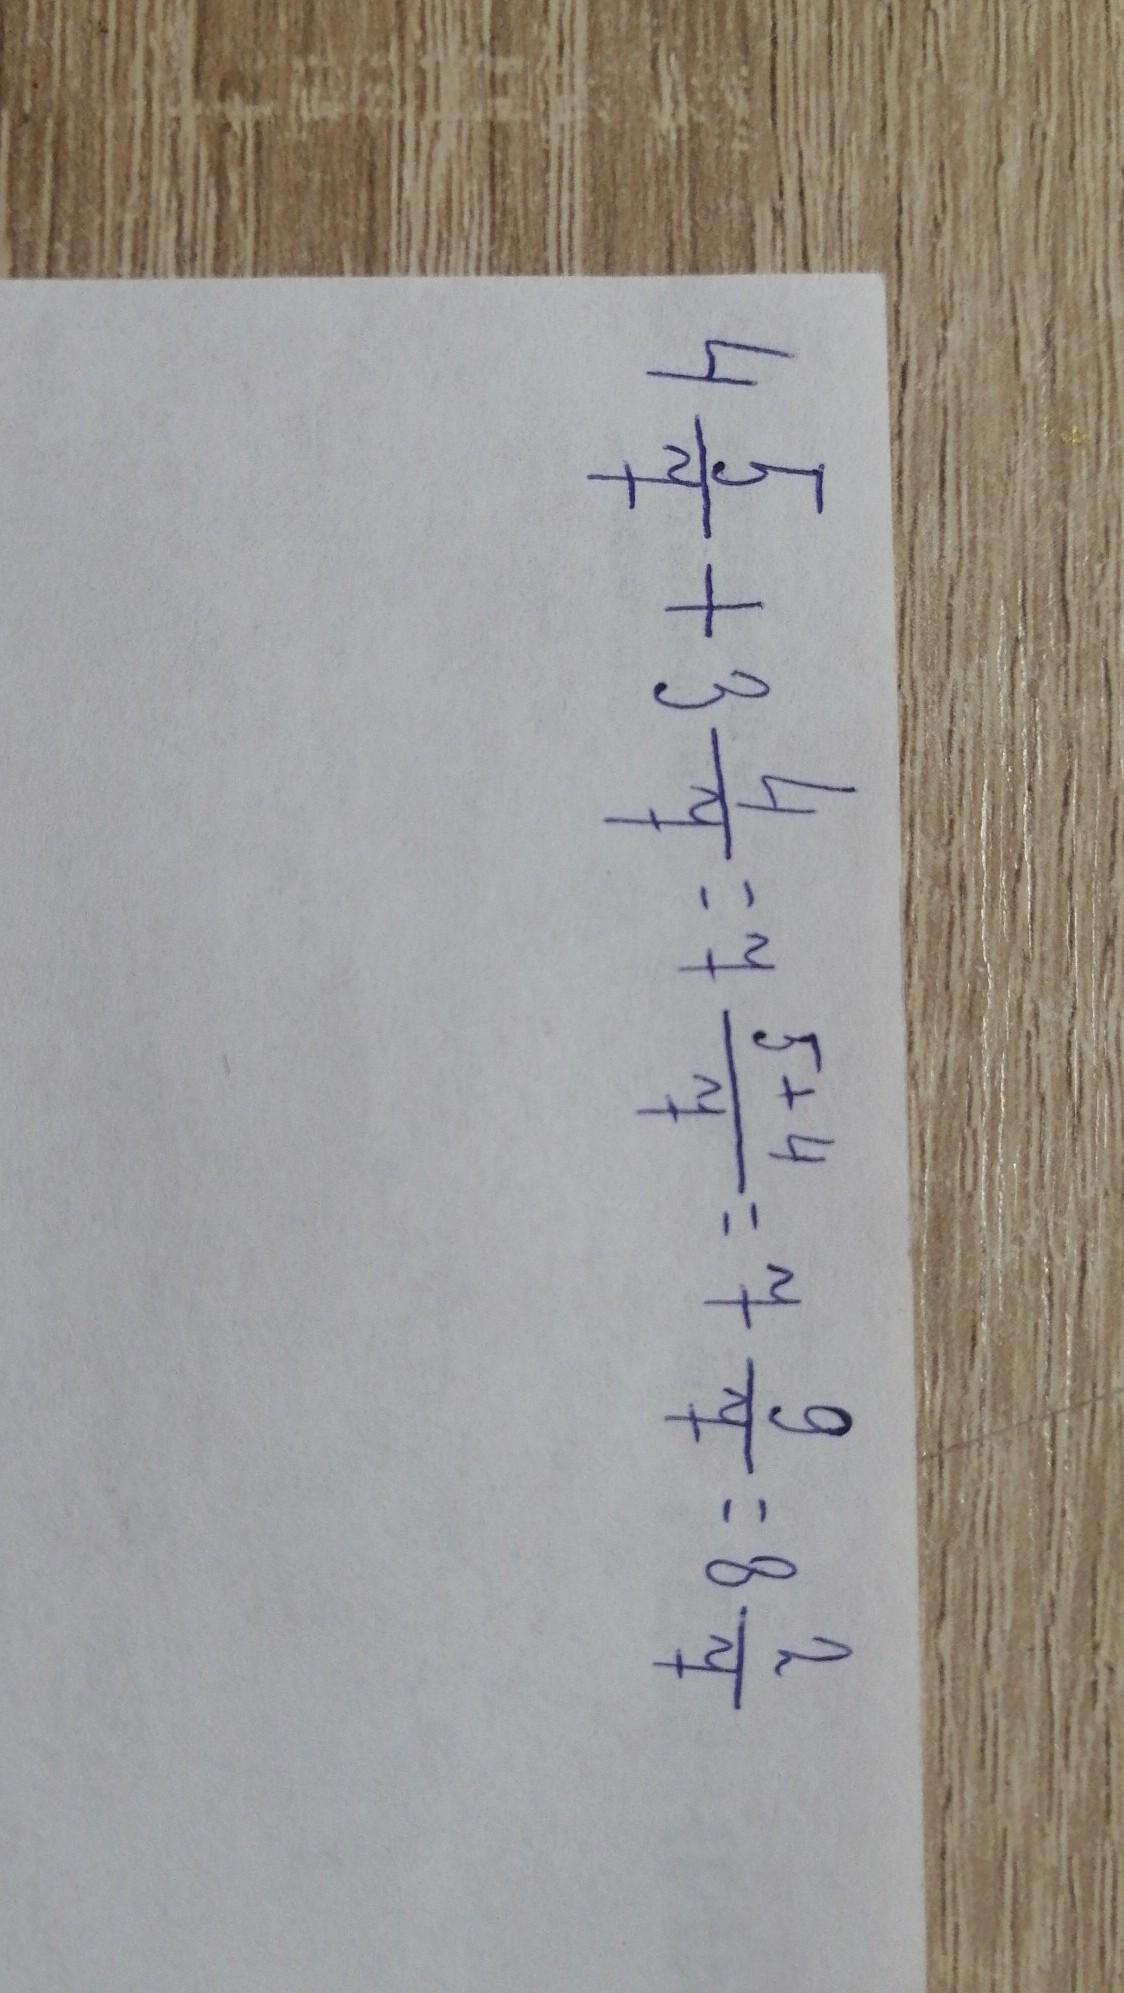 4 5/7 + 3 4/7 = 7 5+4/7 = 7 9/7 = 8 2/7